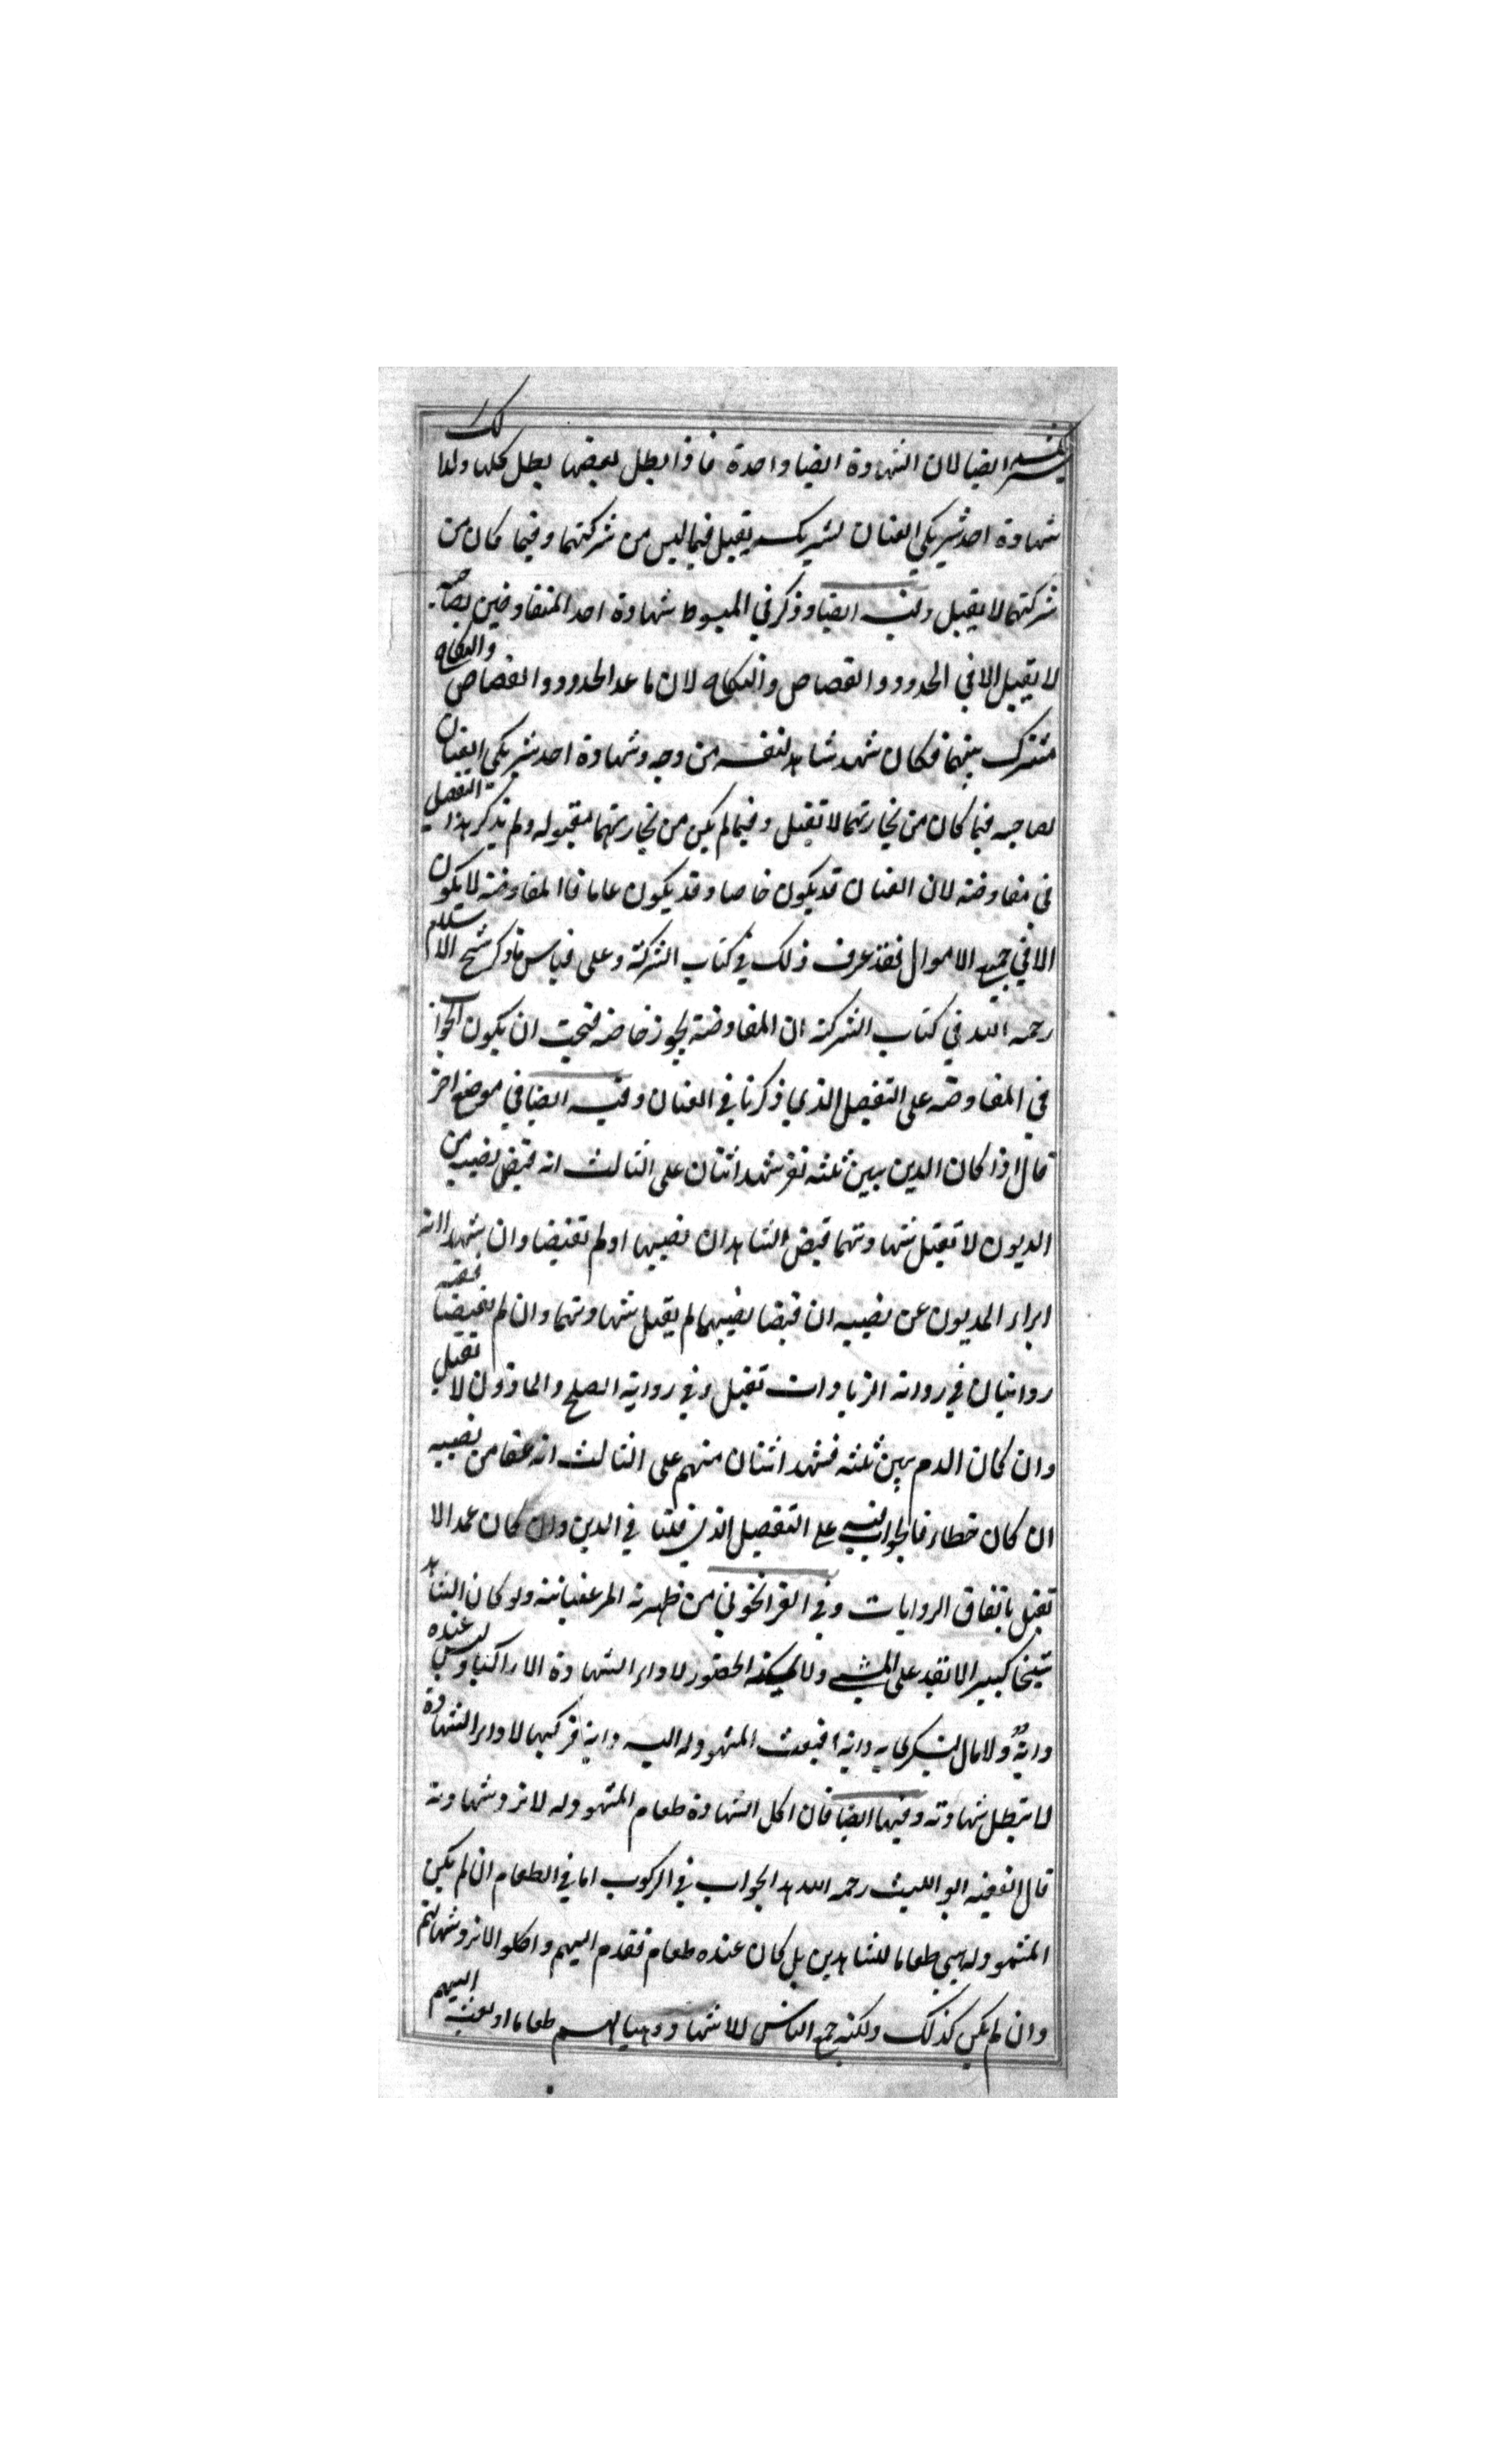 لشريكه ايضا لان الشهادة ايضا واحدة فاذا بطل بعضها بطل كلها وكذلك
شهادة احد شريكي العنان لشريكه يقبل فيما ليس من شركتهما وفيما كان من
شركتهما لا يقبل وفيه ايضا وذكر في المبسوط شهادة احد المتفاوضين لصاحبه
لا يقبل الا في الحدود والقصاص والنكاح لان ما عدا الحدود والقصاص والنكاح
مشترك بينهما فكان شهد شاهد لنفسه من وجه وشهادة احد شريكي العنان
لصاحبه فيما كان من تجارتهما لا تقبل وفيما لم يكن من تجارتهما مقبوله ولم يذكر هذا التفصيل
في مفاوضه لان العنان قد يكون خاصا وقد يكون عاما فاالمفاوضه لا يكون
الا في جميع الاموال فقد عرف ذلك في كتاب الشركة وعلى قياس ما ذكر شيخ الاسلام
رحمه الله في كتاب الشركة ان المفاوضة يجوز خاصه فتحيت ان يكون الجواب
في المفاوضه على التفصيل الذي ذكرنا في العنان وفيه ايضا في موضع اخر
قال اذا كان الدين بين ثلثه نفر شهد اثنان على الثالث انه قبض نصيبه من
الديون لا تقبل شهادتهما قبض الشاهدان نصيبهما او لم تقبضا وان شهدا انه
ابراء المديون عن نصيبه ان قبضا نصيبهما لم يقبل شهادتهما وان لم يقبضا ففيه
روايتان في رواية الزيادات تقبل وفي رواية الصلح والماذون لا تقبل
وان كان الدم بين ثلثه فشهد اثنان منهم على الثالث انه عفا من نصيبه
ان كان خطاء فالجواب فيه على التفصيل الذي قلنا في الدين وان كان عمدا لا
تقبل باتفاق الروايات وفي القراخوني من ظهرته المرغنيانيه ولو كان الشاهد
شيخا كبيرا لا نقد على المشي ولا يمكنه الحضور لاداء الشهادة الا راكبا وليس عنده
دابة ولا مال ليسكرى به دابة فبعث المشهود له اليه دابة فركبها لاداء الشهادة
لا تبطل شهادته وفيها ايضا فان اكل الشهادة طعام المشهود له لا ترد شهادته
قال الفقيه ابو الليث رحمه الله هذا الجواب في الركوب اما في الطعام ان لم يكن
المشهود له هيي طعاما للشاهدين بل كان عنده طعام فقدم اليهم واكلوا لا ترد شهادتهم
وان لم يكن كذلك ولكنه جمع الناس للاشهاد وهيا لهم طعاما او بعث اليهم